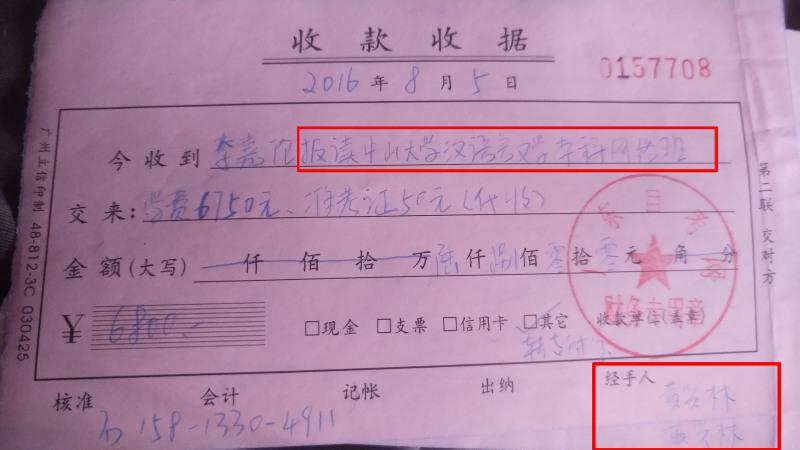 收款收据
2016年8月5日
0157708
今收到 李嘉 报读中山大学汉语言文学本科网络班
交来：学费6750元、准考证50元（代收）
金额（大写） 仟 佰 拾 万 陆仟 捌佰 零拾 零元 角 分
¥ 6800.- □现金 □支票 □信用卡 □其它 收款单位（盖章）
转支付宝
财务专用章
核准 会计 记帐 出纳 经手人
158-1330-4911
林
林
第二联 交对方
广州立信印制 48-812-3C 030425